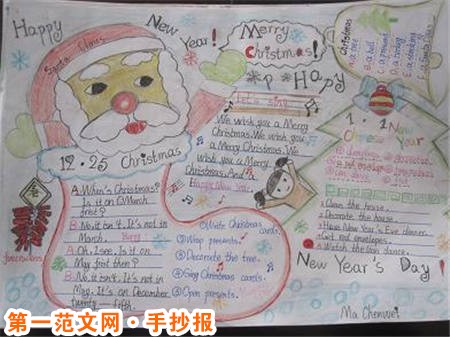 Happy
New
Year!
Merry
Christmas!
Happy
Christmas
a tree
a bell
a present
a stocking
Santa Claus
Let's sing
We wish you a Merry
Christmas. We wish
you a Merry
Christmas. We
wish you a Merry
Christmas. And a
Happy New Year.
1·1 New
Chinese Year
12·25 Christmas
A: When's Christmas?
Is it on March
first?
B: No, it isn't. It's not in
March.
A: Oh, I see. Is it on
May first then?
B: No, it isn't. It's not in
May. It's on December
twenty-fifth.
① Write Christmas
cards.
② Wrap presents.
③ Decorate the tree.
④ Sing Christmas cards.
⑤ Open presents.
firecrackers
Clean the house.
Decorate the house.
Have New Year's Eve dinner.
Get red envelopes.
Watch the lion dance.
New Year's Day!
Ma Chenwei
第一范文网·手抄报